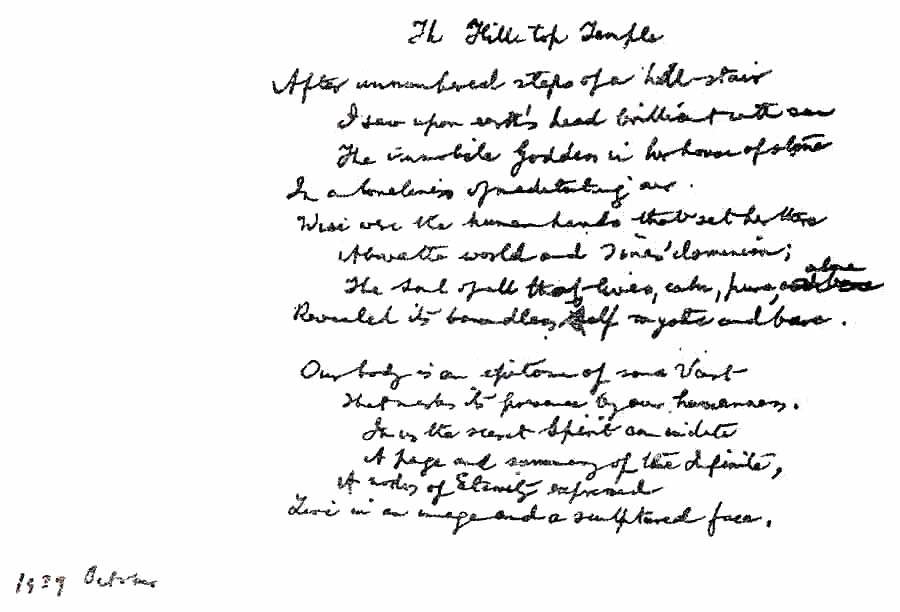 The Hill-top Temple
After unnumbered steps of a hill-stair
I saw upon earth's head brilliant with sun
The immobile Goddess in her house of stone
In a loneliness of meditating air.
Wise were the human hands that set her there
Above the world and Time's dominion;
The Soul of all that lives, calm, pure, alone
Revealed its boundless self mystic and bare.
Our body is an epitome of some Vast
That masks its presence by our humanness.
In us the secret Spirit can indite
A page and summary of the Infinite,
A nodus of Eternity expressed
Live in an image and a sculptured face.
1939 October